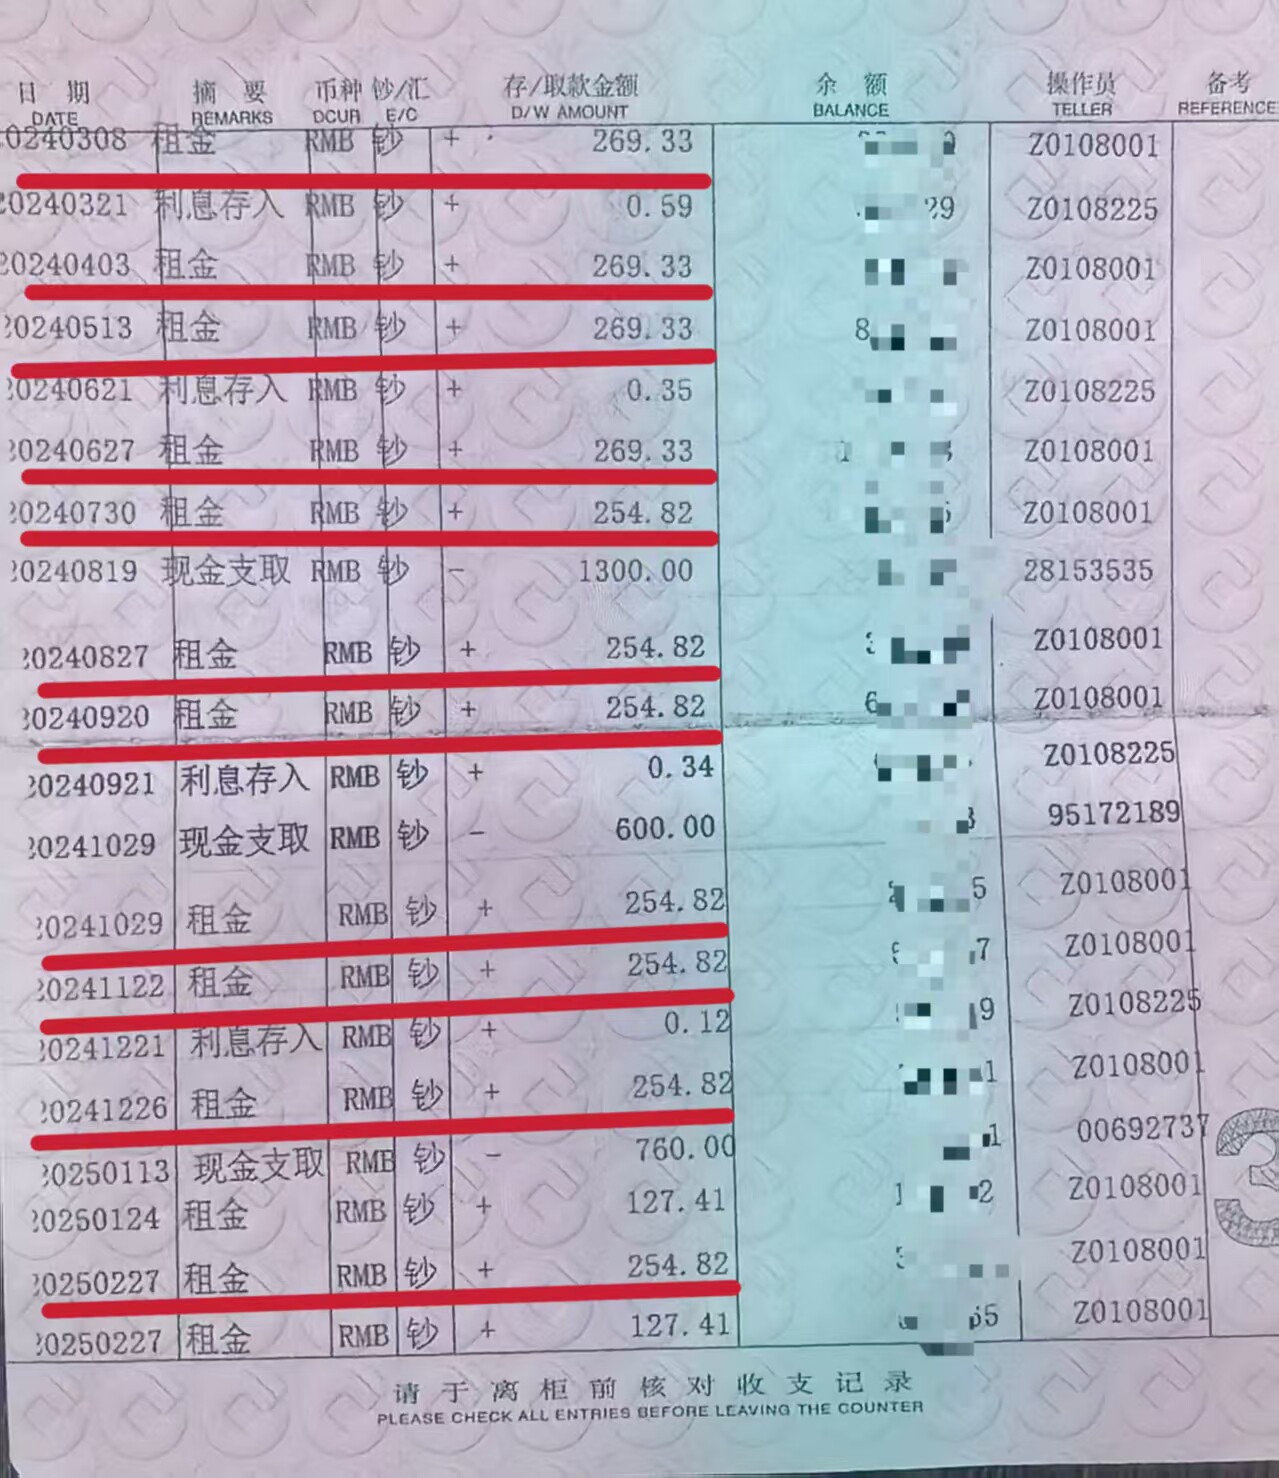 日 期 摘 要 币种 钞/汇 存/取款金额 余 额 操作员 备考
DATE REMARKS DCUR E/C D/W AMOUNT BALANCE TELLER REFERENCE
20240308 租金 RMB 钞 + 269.33 Z0108001
20240321 利息存入 RMB 钞 + 0.59 29 Z0108225
20240403 租金 RMB 钞 + 269.33 Z0108001
20240513 租金 RMB 钞 + 269.33 8 Z0108001
20240621 利息存入 RMB 钞 + 0.35 Z0108225
20240627 租金 RMB 钞 + 269.33 Z0108001
20240730 租金 RMB 钞 + 254.82 Z0108001
20240819 现金支取 RMB 钞 - 1300.00 28153535
20240827 租金 RMB 钞 + 254.82 Z0108001
20240920 租金 RMB 钞 + 254.82 6 Z0108001
20240921 利息存入 RMB 钞 + 0.34 Z0108225
20241029 现金支取 RMB 钞 - 600.00 95172189
20241029 租金 RMB 钞 + 254.82 5 Z0108001
20241122 租金 RMB 钞 + 254.82 7 Z0108001
20241221 利息存入 RMB 钞 + 0.12 9 Z0108225
20241226 租金 RMB 钞 + 254.82 1 Z0108001
20250113 现金支取 RMB 钞 - 760.00 1 00692737
20250124 租金 RMB 钞 + 127.41 1 2 Z0108001
20250227 租金 RMB 钞 + 254.82 Z0108001
20250227 租金 RMB 钞 + 127.41 55 Z0108001
3
请于离柜前核对收支记录
PLEASE CHECK ALL ENTRIES BEFORE LEAVING THE COUNTER